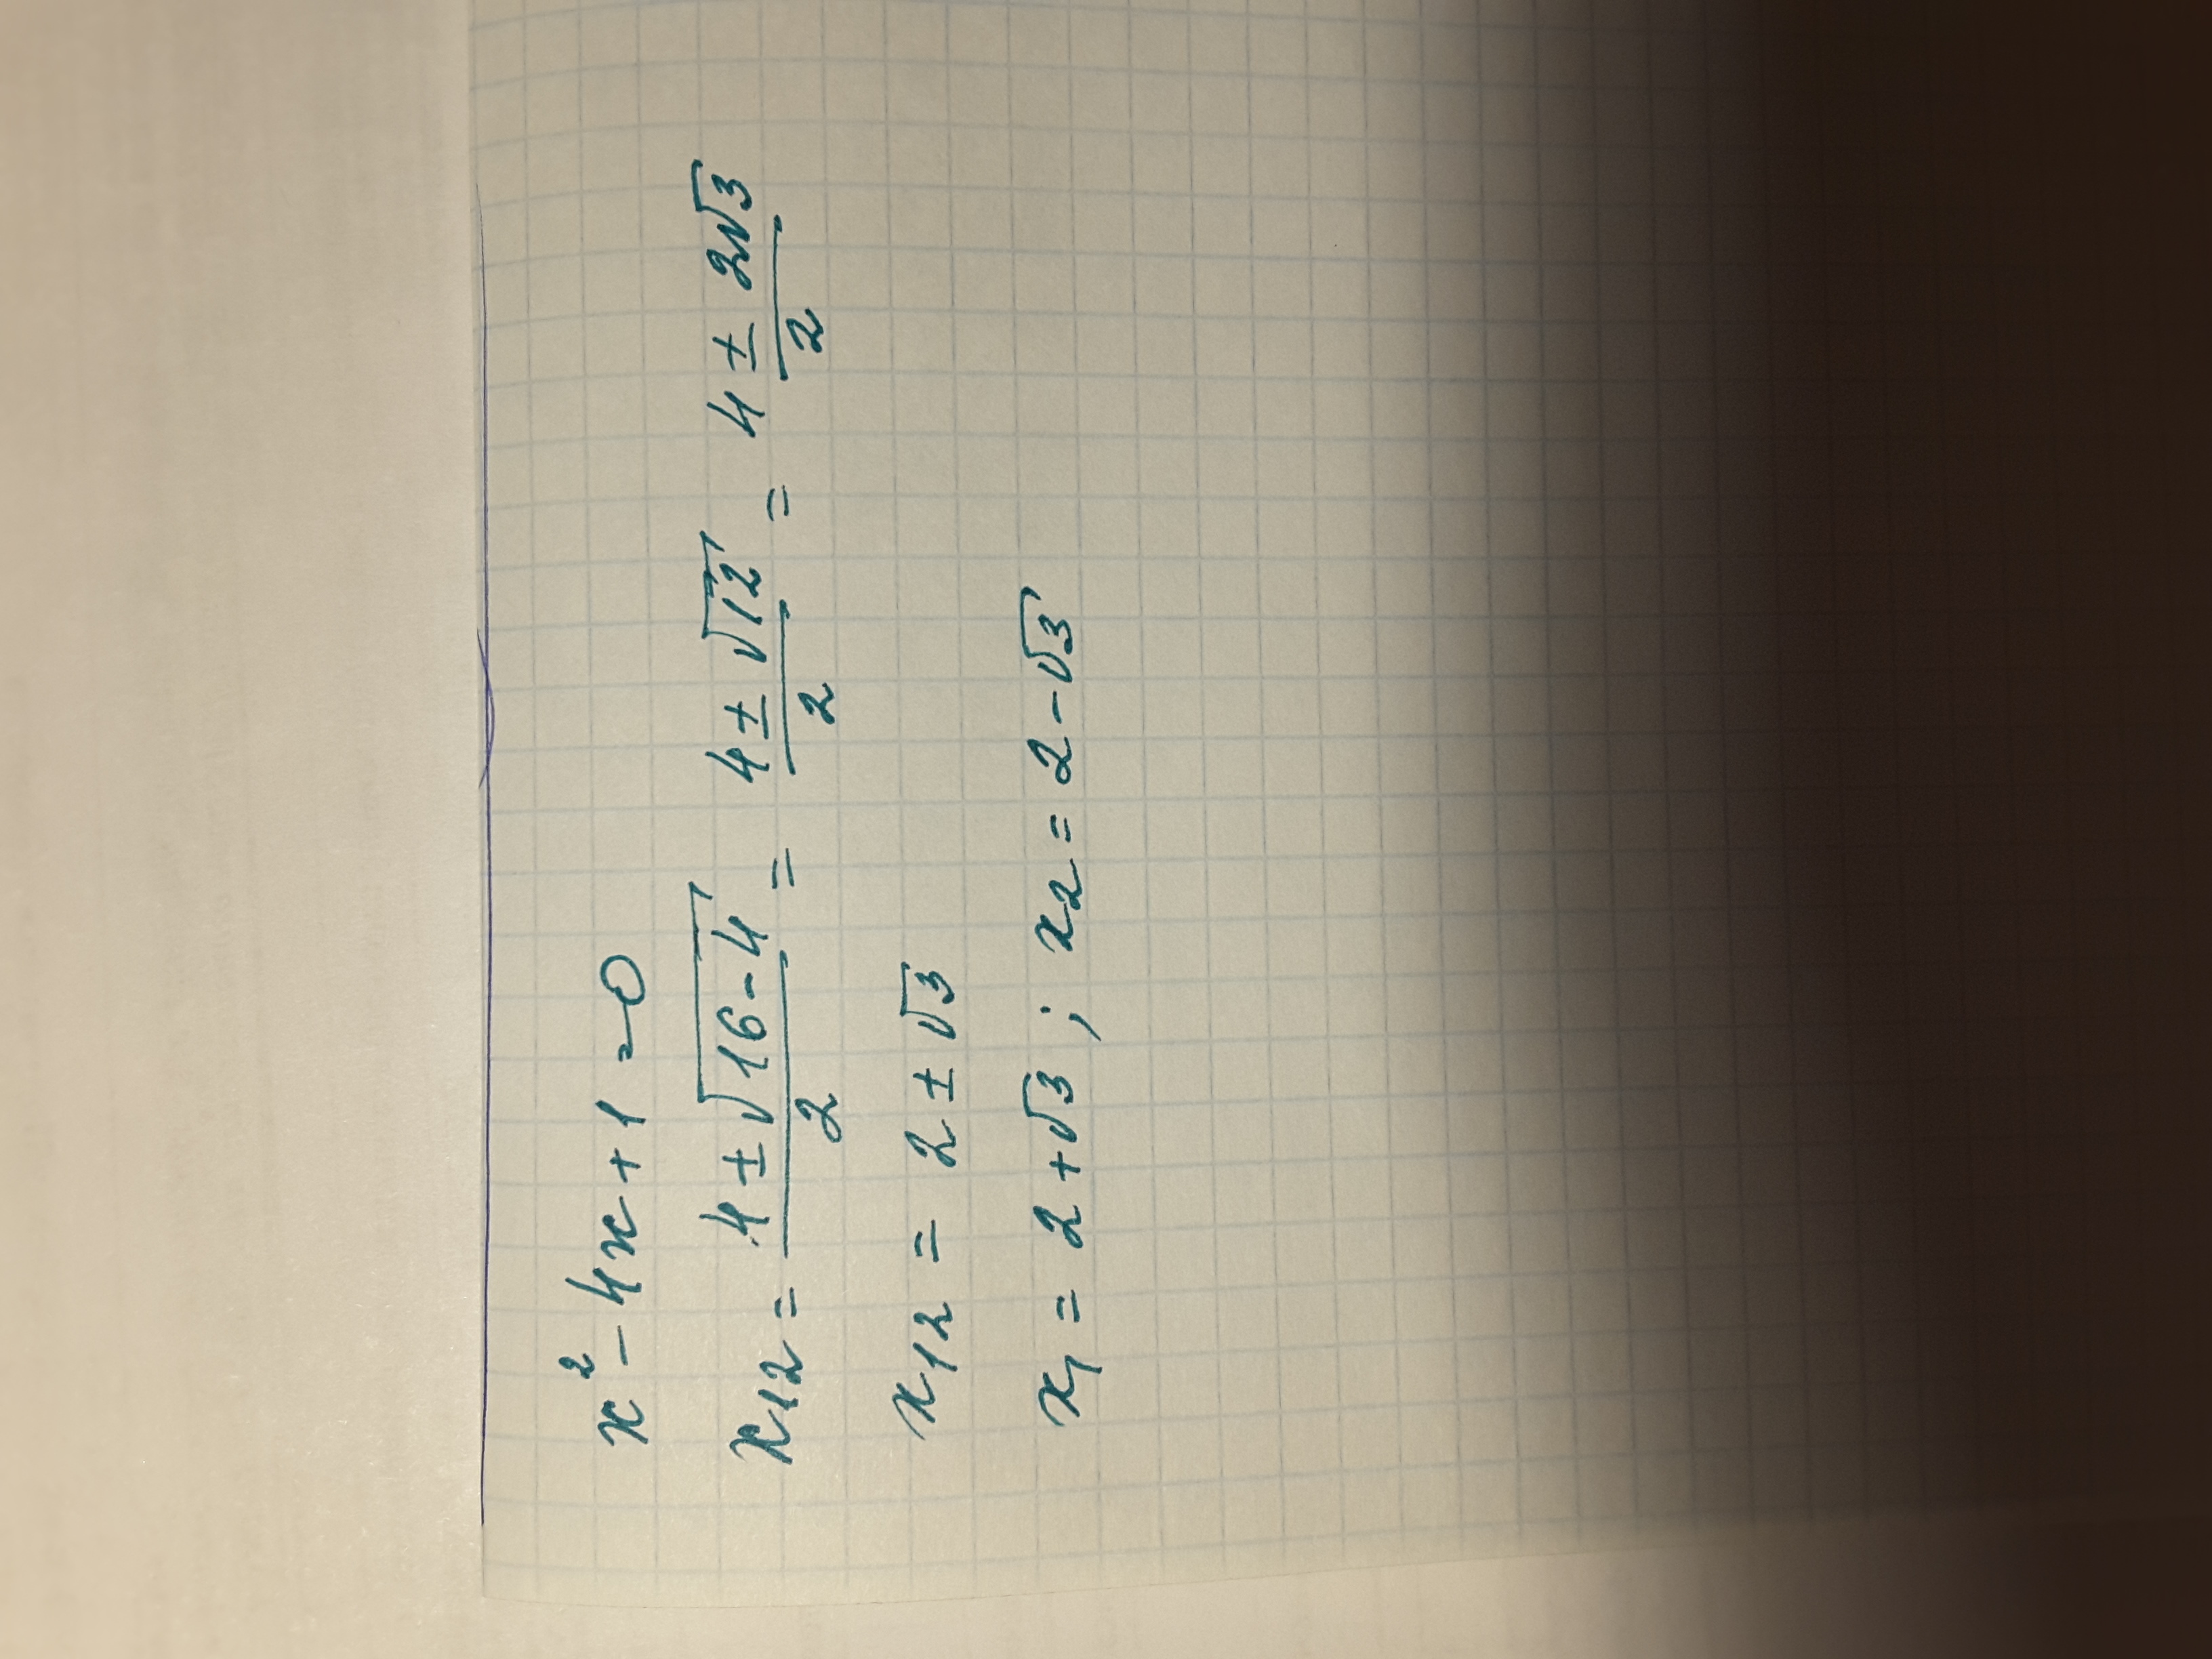 x² - 4x + 1 = 0
x₁₂ = (4 ± √(16 - 4))/2 = (4 ± √12)/2 = 4 ± 2√3/2
x₁₂ = 2 ± √3
x₁ = 2 + √3 ; x₂ = 2 - √3